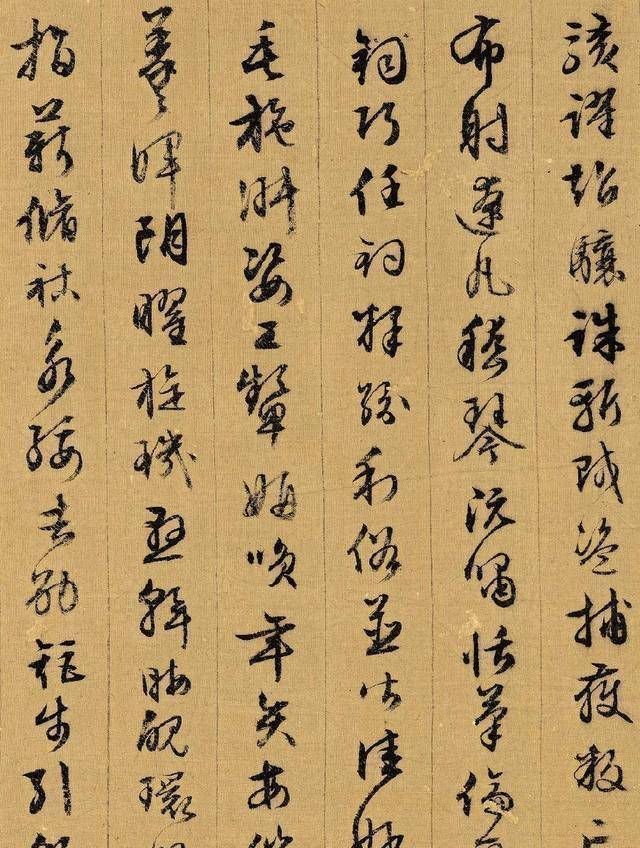 駭躍超驤誅斬賊盜捕獲叛
布射遼丸嵇琴阮嘯恬筆倫
鈞巧任釣釋紛利俗並皆佳妙
毛施淑姿工顰妍笑年矢每催
羲暉朗曜旋璣懸斡晦魄環
指薪修祜永綏吉劭矩步引